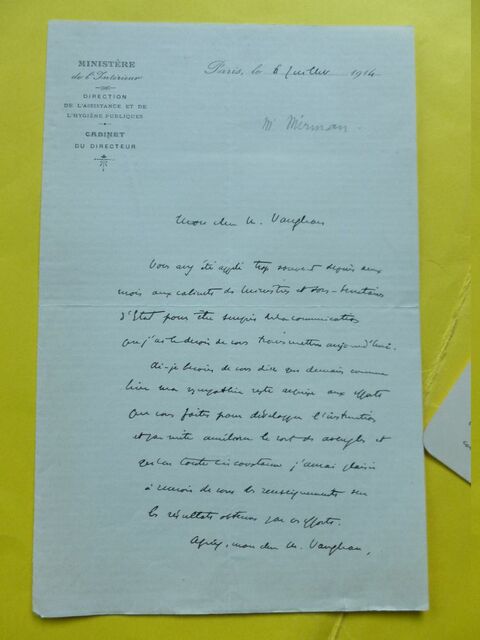 MINISTÈRE
de l'Intérieur
DIRECTION
DE L'ASSISTANCE ET DE
L'HYGIÈNE PUBLIQUES
CABINET
DU DIRECTEUR
Paris, le 6 juillet 1914
Mr Mirman
Mon cher M. Vaughan
Vous avez été appelé trop souvent depuis
mois aux cabinets des Ministres et Sous-Secrétaires
d'Etat pour être surpris de la communication
que j'ai le devoir de vous transmettre aujourd'hui.
Ai-je besoin de vous dire que demain comme
hier ma sympathie reste acquise aux efforts
que vous faites pour développer l'instruction
et par suite améliorer le sort des aveugles et
qu'en toute circonstance j'aurai plaisir
à recevoir de vous les renseignements sur
les résultats obtenus par ces efforts.
Agréez, mon cher M. Vaughan,